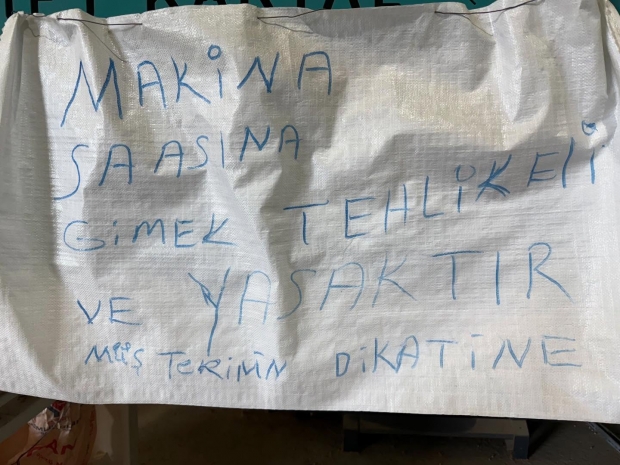 MAKİNA
SAASINA
GİMEK TEHLİKELİ
VE YASAKTIR
MÜŞTERİNİN DİKATİNE